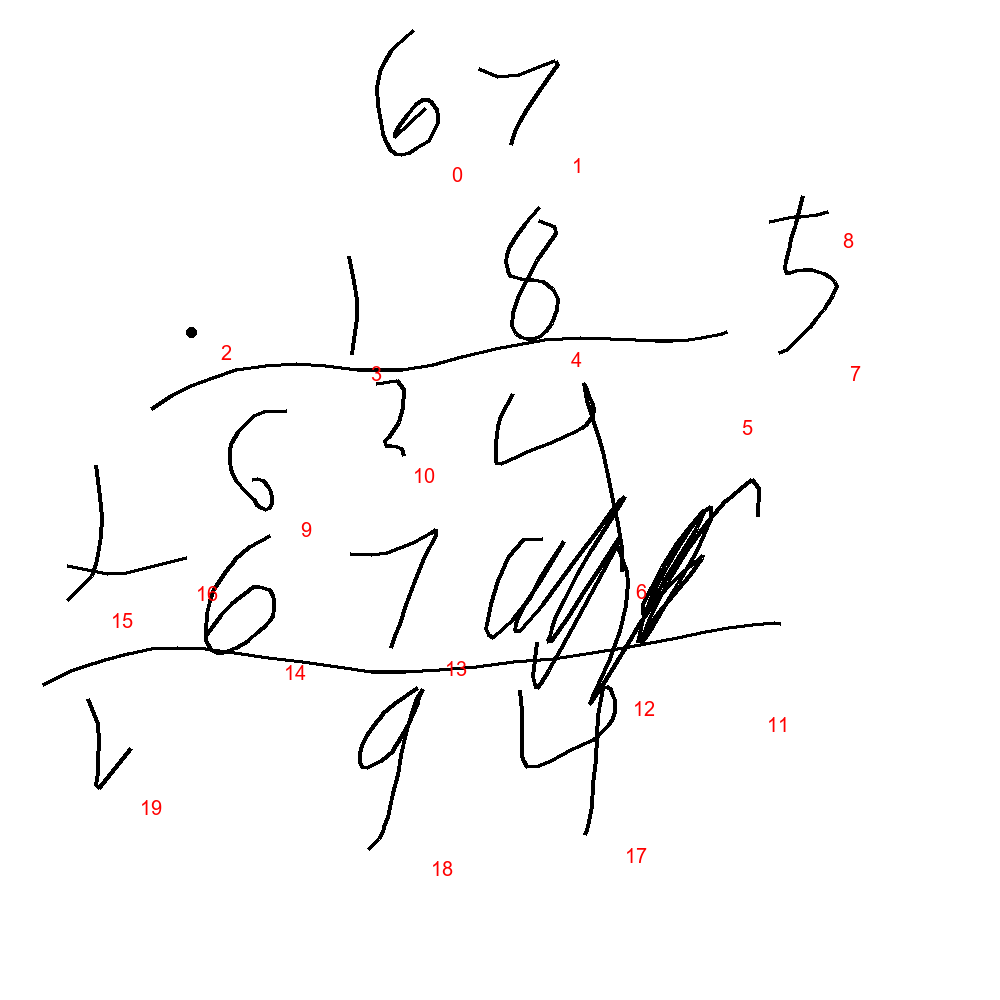 67
0 1
. 1 8 5
8
2 3 4 7
6 3 4
10 5
9
+ 6 7
15 16 6
14 13
12 11
1 9 4
19 18 17